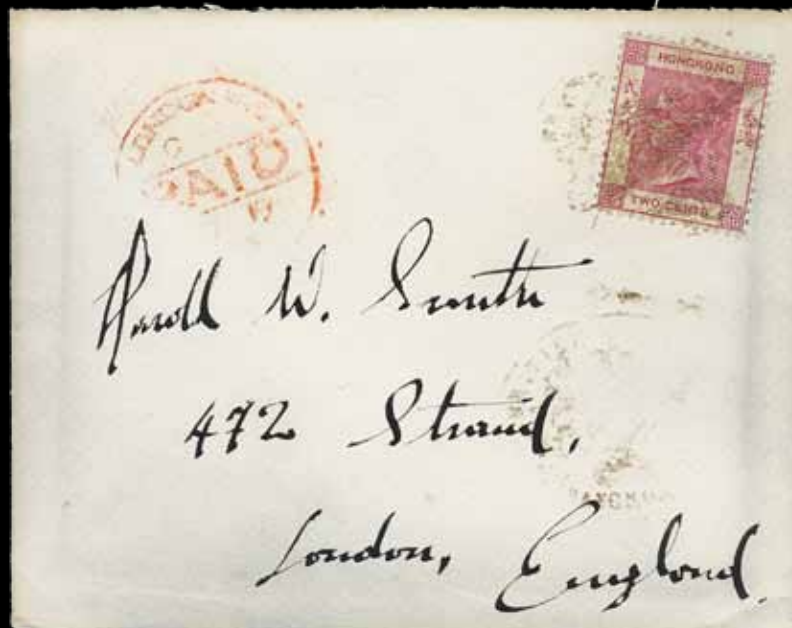 LONDON
PAID
HONG KONG
TWO CENTS
Harold W. Smith
472 Strand,
London, England.